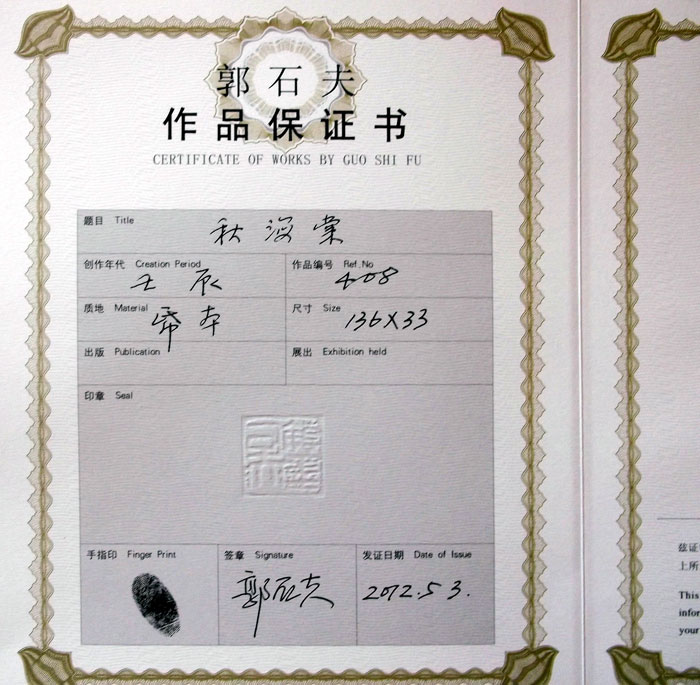 郭石夫
作品保证书
CERTIFICATE OF WORKS BY GUO SHI FU
题目 Title 秋海棠
创作年代 Creation Period 壬辰
作品编号 Ref.No 408
质地 Material 帋本
尺寸 Size 136X33
出版 Publication
展出 Exhibition held
印章 Seal
手指印 Finger Print
签章 Signature 郭石夫
发证日期 Date of Issue 2012.5 3.
兹证
上所
This
infor
your